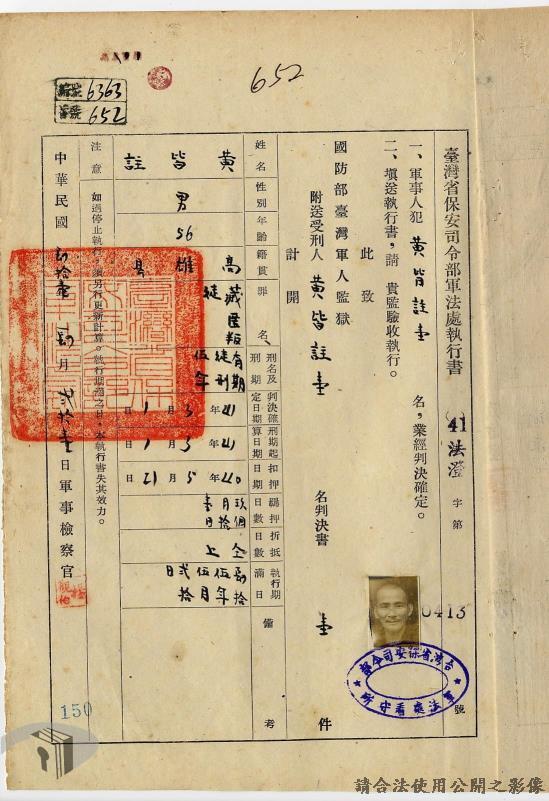 652
編號 6363
652
臺灣省保安司令部軍法處執行書
41 法澄 字第 0413 號
一、軍事人犯 黃皆註 壹 名,業經判決確定。
二、填送執行書,請 貴監驗收執行。
此致
國防部臺灣軍人監獄
附送受刑人 黃皆註 壹 名判決書 壹 件
計開
姓名 黃皆註
性別 男
年齡 56
籍貫 高雄縣
罪名 藏匿叛徒
刑名及刑期 有期徒刑伍年
判決確定日期 41年3月1日
刑期起算日期 41年3月1日
扣押日期 40年5月21日
羈押日數 玖個月拾壹日
折抵日數 全上
執行期滿日 肆拾伍年伍月貳拾日
備考
注意 如遇停止執行,須另行更新計算,執行期滿之日,本執行書失其效力。
中華民國 肆拾壹年 月貳拾壹日 軍事檢察官
台灣省保安司令部
軍法處看守所
150
請合法使用公開之影像